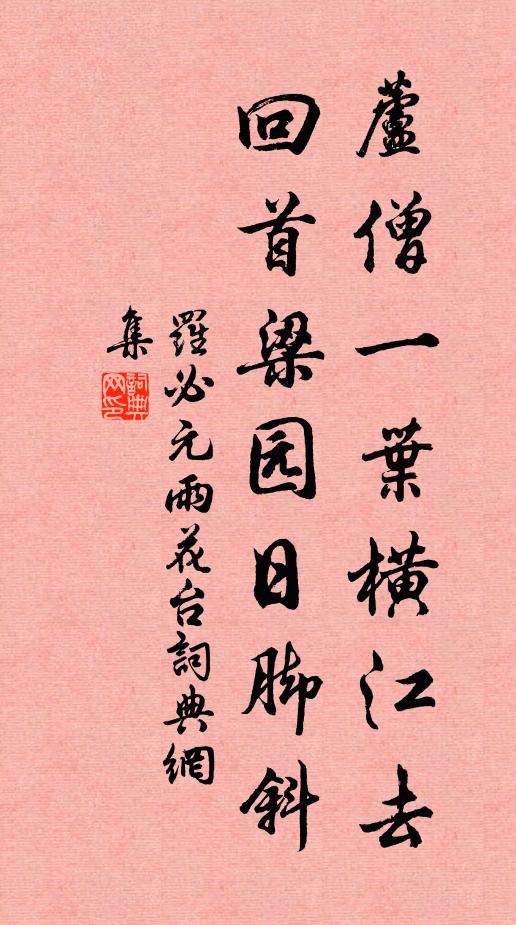 蘆僧一葉橫江去
回首梁园日脚斜
羅必元雨花台詞典網
集
詞典
网印